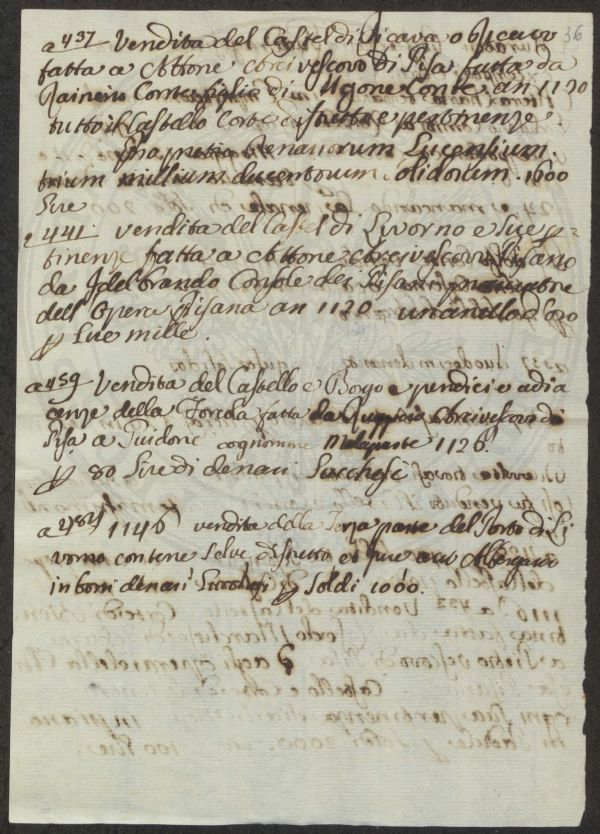 36
a 437 Vendita del Castel di Vicava o Vicavo
fatta a Attone Arcivescovo di Pisa fatta da
Raineiro Conte figlio di Ugone Conte an 1120
tutto il Castello Corte distretto e pertinenze
pro pretio Denariorum Lucensium
trium millium ducentorum solidorum. 1600
Lire
a 441. vendita del Castel di Livorno e sue per
tinenze fatta a Attone Arcivescovo Pisano
da Ildebrando Console dei Pisani
dell Opera Pisana an 1120 un anello d'oro
p Lire mille.
a 459 Vendita del Castello e Borgo apendici e adia
cenze della fatta da Arcivescovo di
Pisa a Guidone cognomine Malaparte 1126.
p 80 Lire di denari Lucchesi
a 484 1146 vendita della Terza parte del Porto di Li
vorno con terre selve distretto et
in boni denari Lucchesi p Soldi 1000.